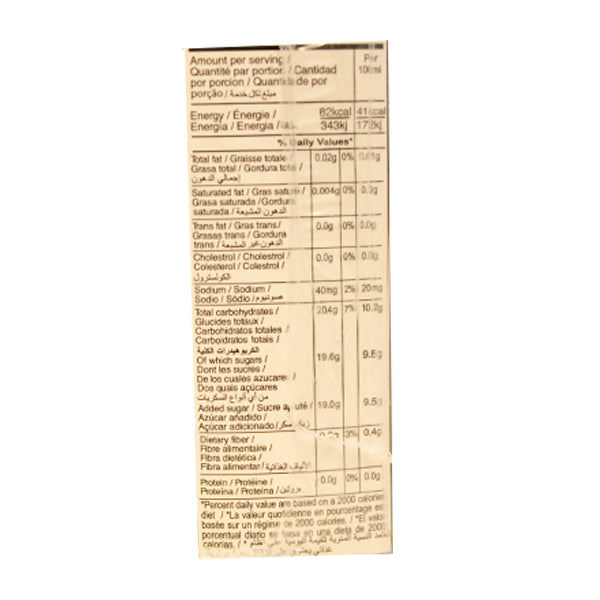 Amount per serving / Per
Quantité par portion / Cantidad 100ml
por porcion / Quantidade de por
porção / مبلغ لكل خدمة
Energy / Énergie / 82kcal 41kcal
Energia / Energia / 343kj 172kj
% Daily Values*
Total fat / Graisse totale / 0.02g 0% 0.01g
Grasa total / Gordura total /
إجمالي الدهون
Saturated fat / Gras saturé / 0.004g 0%
Grasa saturada / Gordura
saturada / الدهون المشبعة
Trans fat / Gras trans / 0.0g 0% 0.0g
Grasas trans / Gordura
trans / الدهون غير المشبعة
Cholestrol / Cholestrol / 0.0g 0% 0.0g
Colesterol / Colestrol /
الكولسترول
Sodium / Sodium / 40mg 2% 20mg
Sodio / Sódio / صوديوم
Total carbohydrates / 20.4g 7% 10.2g
Glucides totaux /
Carbohidratos totales /
Carboidratos totais /
الكربوهيدرات الكلية
Of which sugars / 19.6g 9.8g
Dont les sucres /
De los cuales azucares /
Dos quais açúcares
من أي أنواع السكريات
Added sugar / Sucre ajouté / 19.0g 9.5g
Azúcar añadido /
Açúcar adicionado / سكر
Dietary fiber / 3% 0.4g
Fibre alimentaire /
Fibra dietética /
Fibra alimentar / الألياف الغذائية
Protein / Protéine / 0.0g 0% 0.0g
Proteína / Proteína / بروتين
*Percent daily value are based on a 2000 calories
diet / *La valeur quotidienne en pourcentage est
basée sur un régime de 2000 calories. / *El valor
porcentual diario se basa en una dieta de 2000
calorias. /